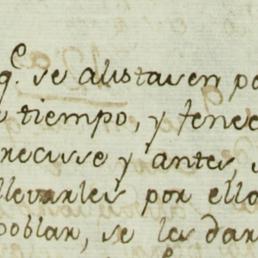 q.e se alistasen po
tiempo, y fenec
recisse y antes, s
llevarles por ello
poblar, se les dar